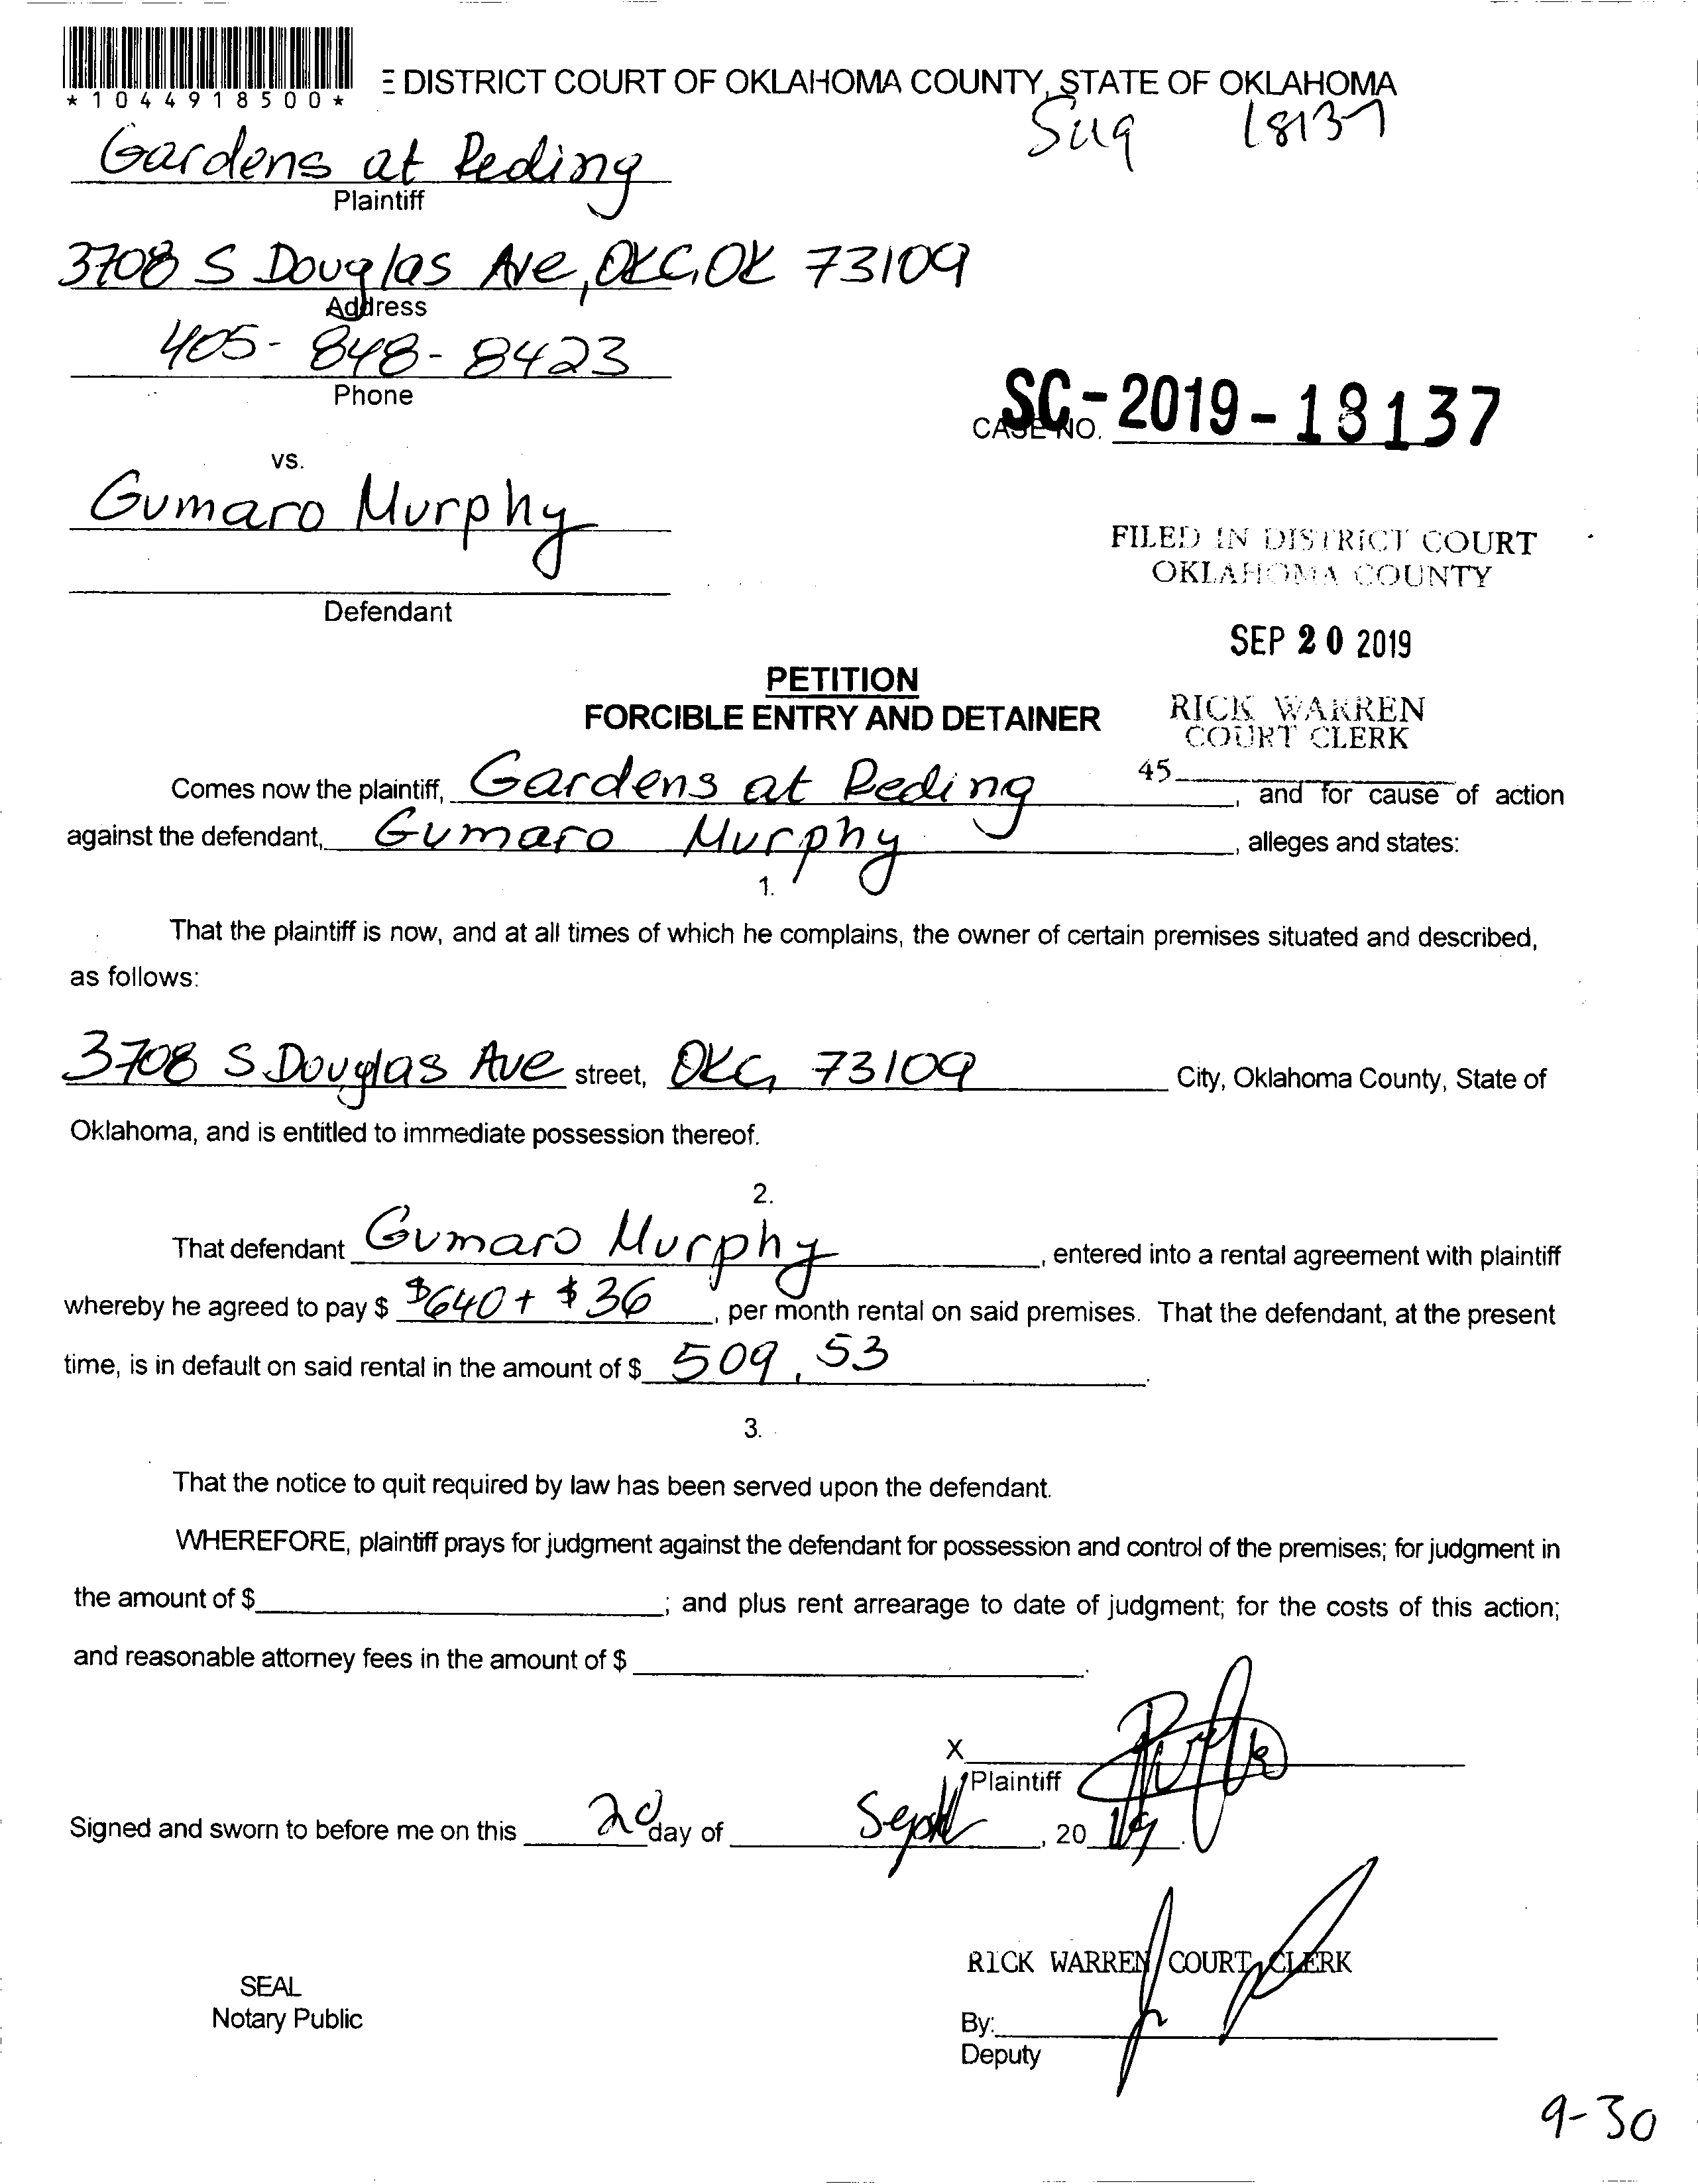 *1044918500*
E DISTRICT COURT OF OKLAHOMA COUNTY, STATE OF OKLAHOMA
18137
Gardens at Reding
Plaintiff
3708 S Douglas Ave, OKC, OK 73109
Address
405-848-8423
Phone
CASE NO. SC-2019-18137
vs.
Gumaro Murphy
Defendant
FILED IN DISTRICT COURT
OKLAHOMA COUNTY
SEP 20 2019
RICK WARREN
COURT CLERK
45
PETITION
FORCIBLE ENTRY AND DETAINER
Comes now the plaintiff, Gardens at Reding, and for cause of action
against the defendant, Gumaro Murphy, alleges and states:
1.
That the plaintiff is now, and at all times of which he complains, the owner of certain premises situated and described,
as follows:
3708 S Douglas Ave street, OKC, 73109 City, Oklahoma County, State of
Oklahoma, and is entitled to immediate possession thereof.
2.
That defendant Gumaro Murphy, entered into a rental agreement with plaintiff
whereby he agreed to pay $ $640 + $36, per month rental on said premises. That the defendant, at the present
time, is in default on said rental in the amount of $ 509.53.
3.
That the notice to quit required by law has been served upon the defendant.
WHEREFORE, plaintiff prays for judgment against the defendant for possession and control of the premises; for judgment in
the amount of $; and plus rent arrearage to date of judgment; for the costs of this action;
and reasonable attorney fees in the amount of $.
X
Plaintiff
Signed and sworn to before me on this 20 day of Sept, 20 19.
RICK WARREN COURT CLERK
SEAL
Notary Public
By:
Deputy
9-30